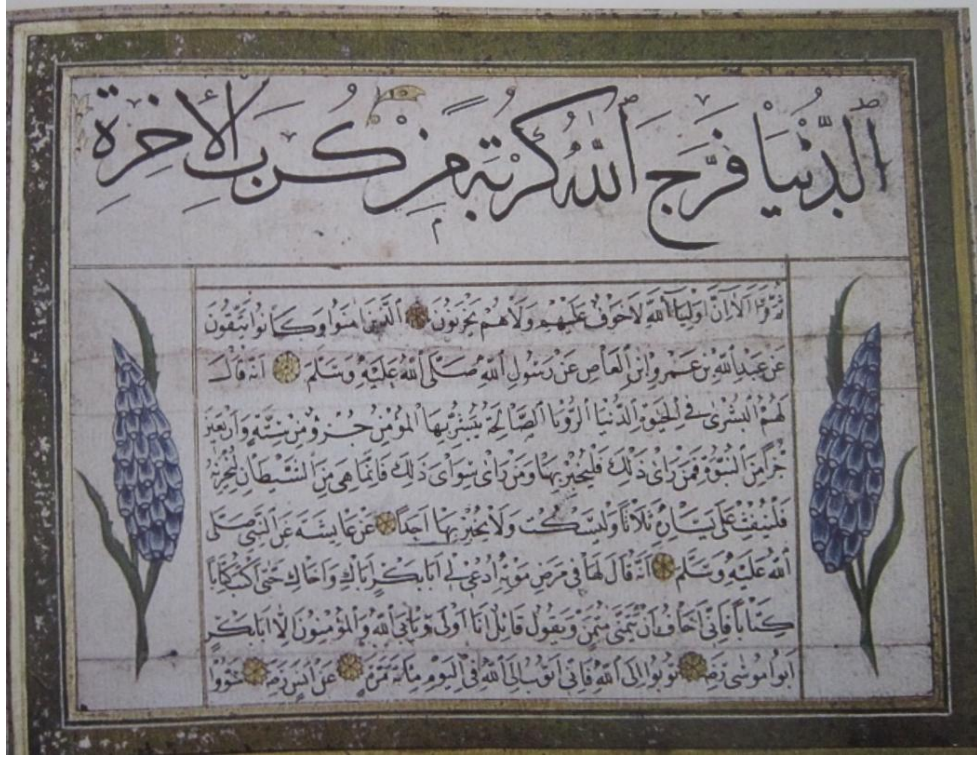 اَلدُّنْيَا فَرَّجَ اَللّٰهُ كُرْبَةً مِنْ كُرَبِ الْأَخِرَةِ
اَلَا اِنَّ اَوْلِيَآءَ اللّٰهِ لَا خَوْفٌ عَلَيْهِمْ وَلَا هُمْ يَحْزَنُونَ اَلَّذِينَ اٰمَنُوا وَكَانُوا يَتَّقُونَ
عَنْ عَبْدِ اللّٰهِ بْنِ عَمْرِو ابْنِ الْعَاصِ عَنْ رَسُولِ اللّٰهِ صَلَّى اللّٰهُ عَلَيْهِ وَسَلَّمَ اَنَّهُ قَالَ
لَهُمُ الْبُشْرٰى فِي الْحَيٰوةِ الدُّنْيَا الرُّؤْيَا الصَّالِحَةُ يُبَشَّرُ بِهَا الْمُؤْمِنُ جُزْؤٌ مِنْ سِتَّةٍ وَاَرْبَعِينَ
جُزْأً مِنَ النُّبُوَّةِ فَمَنْ رَاٰى ذٰلِكَ فَلْيُخْبِرْ بِهَا وَمَنْ رَاٰى سِوَاى ذٰلِكَ فَاِنَّمَا هِيَ مِنَ الشَّيْطَانِ لِيُحْزِنَهُ
فَلْيَنْفِثْ عَلٰى يَسَارِهِ ثَلَاثًا وَلْيَسْكُتْ وَلَا يُخْبِرْ بِهَا اَحَدًا عَنْ عَايِشَةَ عَنِ النَّبِيِّ صَلَّى
اللّٰهُ عَلَيْهِ وَسَلَّمَ اَنَّهُ قَالَ لَهَا فِي مَرَضِ مَوْتِهِ اُدْعِي لِي اَبَا بَكْرٍ اَبَاكِ وَاَخَاكِ حَتّٰى اَكْتُبَ كِتَابًا
كِتَابًا فَاِنِّي اَخَافُ اَنْ يَتَمَنّٰى مُتَمَنٍّ وَيَقُولَ قَايِلٌ اَنَا اَوْلٰى وَيَاْبَى اللّٰهُ وَالْمُؤْمِنُونَ اِلَّا اَبَا بَكْرٍ
اَبُوا مُوسٰى رَضِ تُوبُوا اِلَى اللّٰهِ فَاِنِّي اَتُوبُ اِلَى اللّٰهِ فِي الْيَوْمِ مِائَةَ مَرَّةٍ عَنْ اَنَسٍ رَضِ